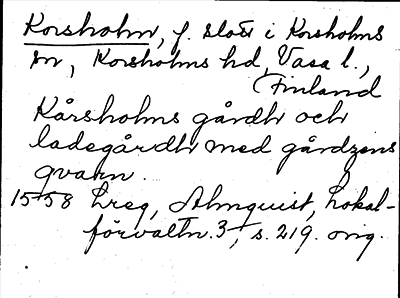 Korsholm, f. slott i Korsholms
sn, Korsholms hd, Vasa l.,
Finland
Kårsholms gårdh och
ladegårdh med gårdzens
qvarn.
1558 Lreg, Almquist, Lokal-
förvaltn. 3, s. 219. orig.